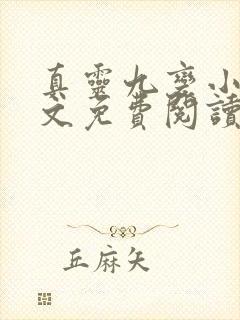 真靈九變小
文免費閱讀
丘麻矢